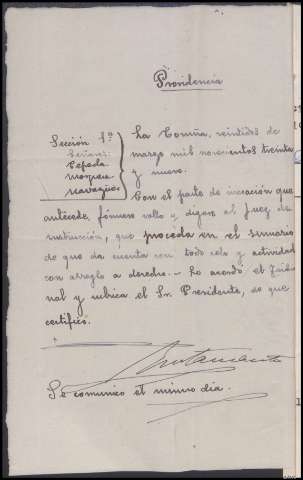 Providencia
Sección 1ª
Señores
Cepeda
Mosquera
Navazuos
La Coruña, veintidos de
marzo mil novecientos treinta
y nueve.
Con el parte de incoación que
antecede, fórmese rollo y dígase al Juez de
instrucción, que proceda en el sumario
de que da cuenta con todo celo y actividad
con arreglo a derecho. - Lo acordó el Tribu
nal y rubrica el Sr. Presidente, de que
certifico.
Se comunico el mismo dia.